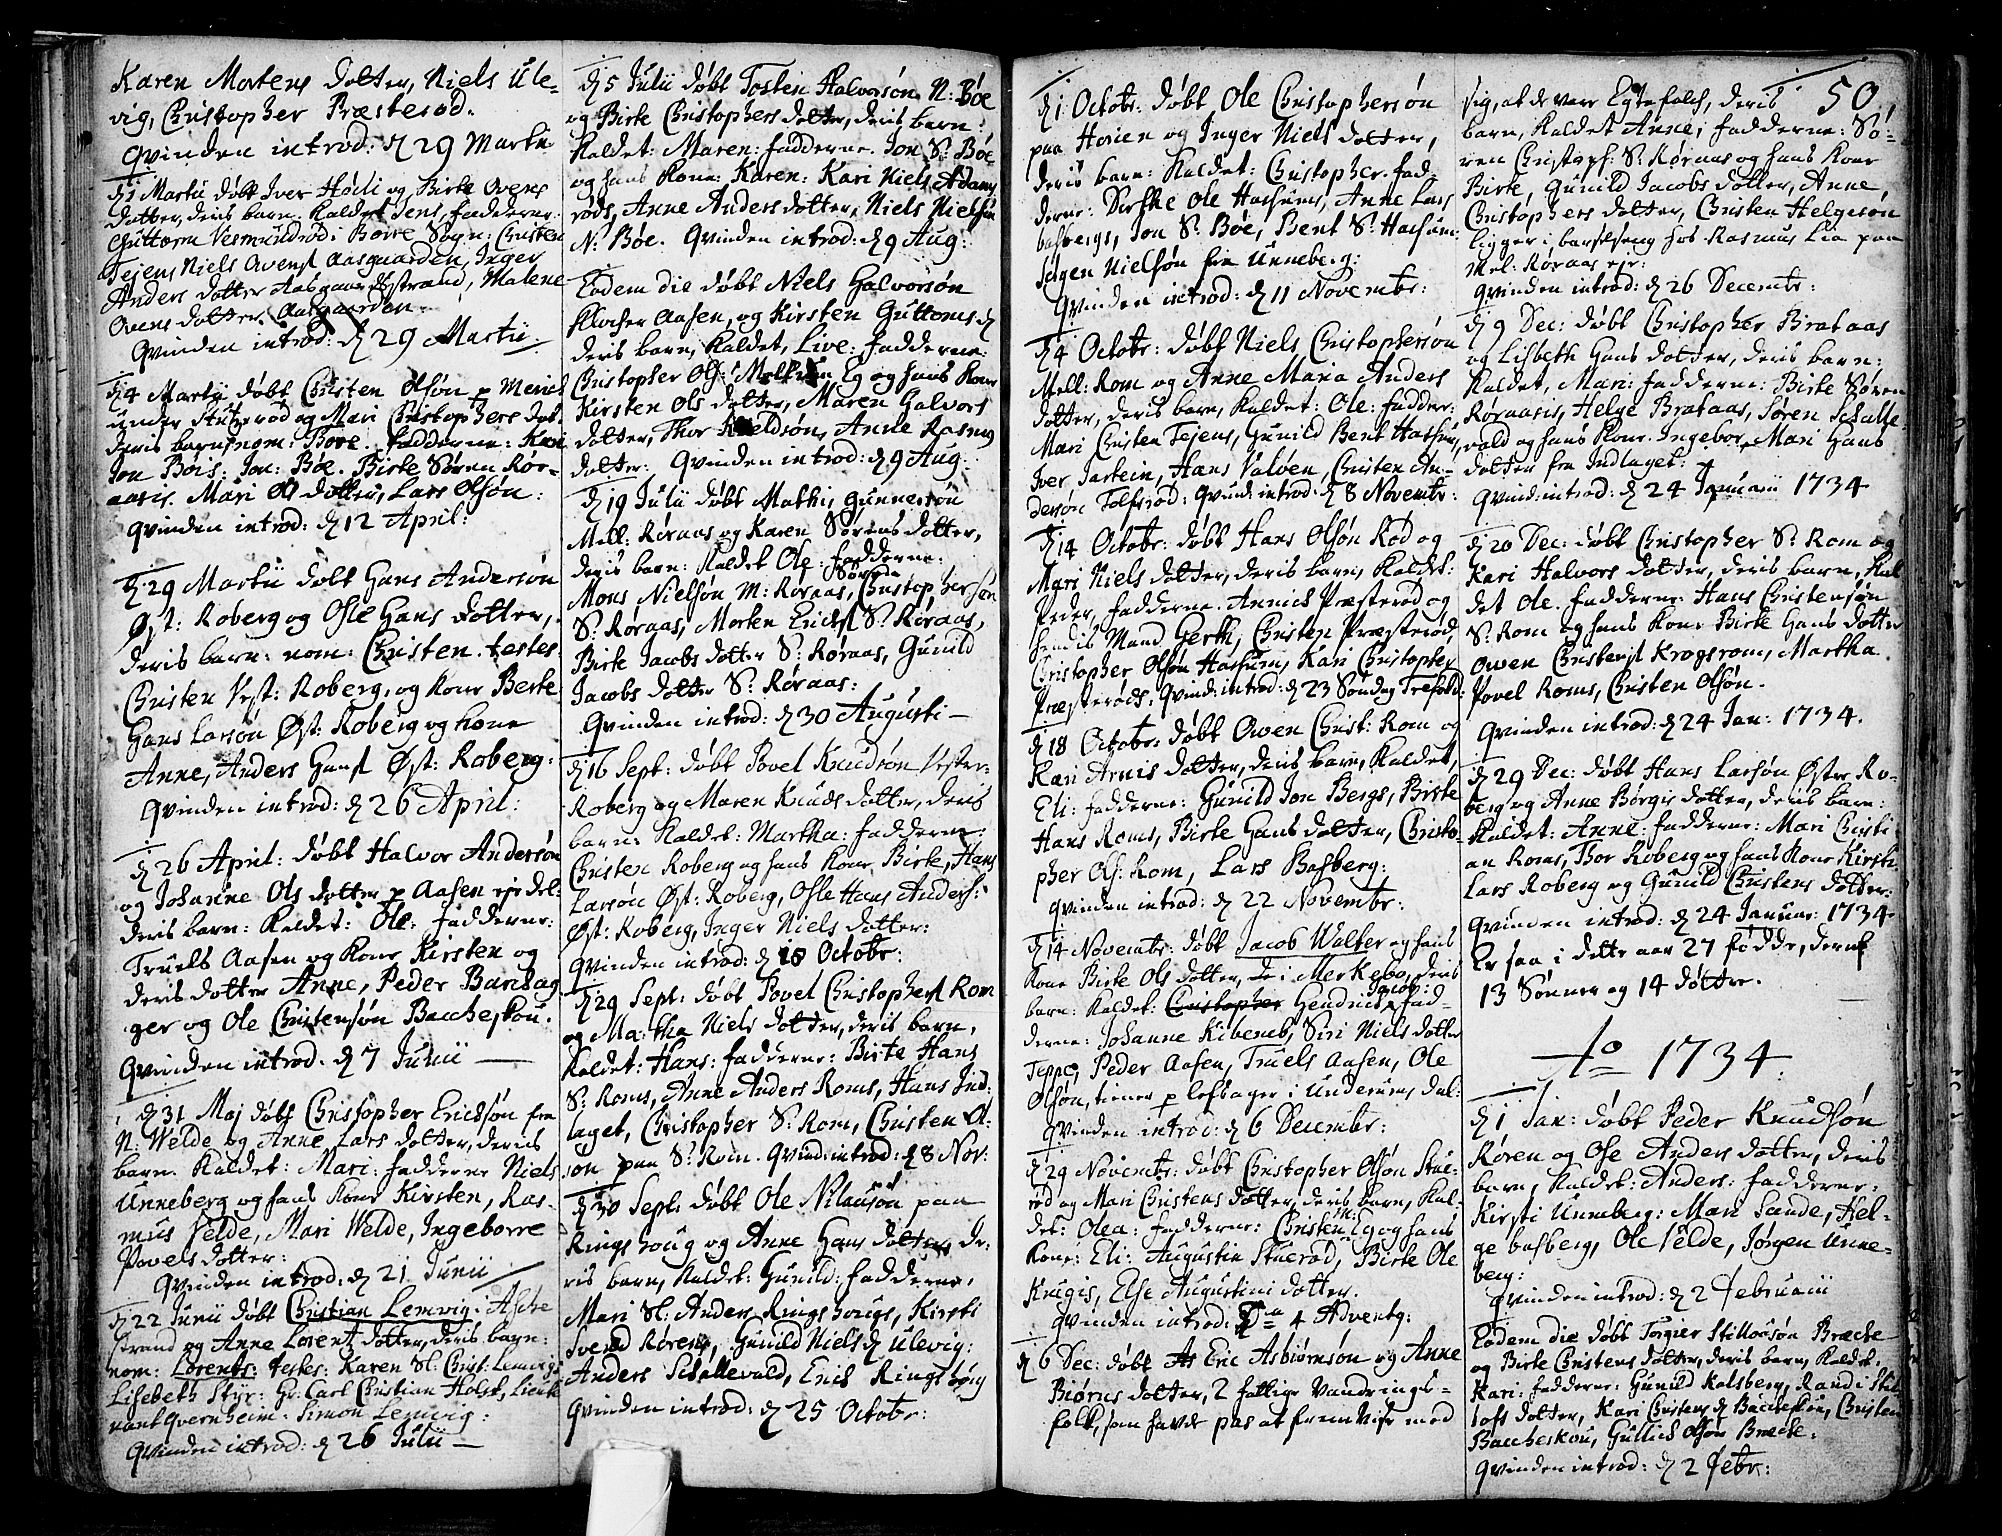 Karen Mortens dotter, Niels Ule-
vig, Christopher Præsterød.
Qvinden introd: d 29 Martii
d 1 Martii døbt Iver Hødi og Birte Ovens
dotter, deris barn. Kaldet Jens, fadderne:
Guttorm Vermundrød i Borre Sogn: Christen
Tejens Niels Ovens Aasgaarden, Inger
Anders dotter Aasgaardstrand, Malene
Ovens dotter Aasgaarden.
Qvinden introd: d 29 Martii.
d 4 Martii døbt Christen Olsøn p
under og Mari Christophers dot.
deris barn: nom: Tore. fadderne: Kari
Jon Bøis: Jon: Bøe. Birte Søren Rør-
aasis. Mari Ols dotter, Lars Olsøn:
Qvinden introd: d 12 April:
d 29 Martii døbt Hans Andersøn
Øst: Roberg og Osle Hans dotter,
deris barn: nom: Christen. testes.
Christen Vest: Roberg, og Kone Berte
Hans Larsøn Øst: Roberg og kone
Anne, Anders Hans Øst: Roberg.
Qvinden introd: d 26 April:
d 26 April: døbt Halvor Andersøn
og Johanne Ols dotter p Aasen eje del:
deris barn: Kaldet: Ole: fadderne:
Truels Aasen og Kone Kirsten og
deris dotter Anne, Peder
ger og Ole Christensøn Baccheskou.
Qvinden introd: d 7 Junii
d 31 Maj døbt Christopher Ericksøn fra
N: Welde og Anne Lars dotter, deris
barn. Kaldet: Mari: fadderne Niels
Unneberg og hans Kone Kirsten, Ras-
mus Velde, Mari Welde, Ingeborre
Povels dotter:
Qvinden introd: d 21 Junii
d 22 Junii døbt Christian Lemvig: Asche
strand og Anne Lorentz dotter, deris barn:
nom: Lorents: testes: Karen Sl: Christ: Lemvigs
Lisebeth Styr: Hr: Carl Christian Holst, Lieut
nant Qvernheim: Simon Lemvig:
Qvinden introd: d 26 Julii
d 5 Julii døbt Tosten Halvorsøn N: Bøe
og Birte Christophers dotter, deris barn:
Kaldet: Maren: fadderne. Jon S: Bøe
og hans Kone: Karen: Kari Niels Adams
røds, Anne Anders dotter, Niels Nielsøn
N: Bøe. Qvinden introd: d 9 Aug:
Eodem die døbt Niels Halvorsøn
Klocker Aasen, og Kirsten Guttorms d
deris barn, Kaldet, Live: fadderne:
Christopher Ols: Eg og hans Kone
Kirsten Ols dotter, Maren Halvors
dotter, Thor Kieldsøn, Anne Rasmus
dotter: Qvinden introd: d 9 Aug:
d 19 Julii døbt Mathis Gunnersøn
Mell: Røraas og Karen Sørens dotter,
deris barn: Kaldet Ole: fadderne:
Mons Nielsøn M: Røraas, Søren Christophersøn
S: Røraas, Morten Ericks S: Røraas,
Birte Jacobs dotter S: Røraas, Gunild
Jacobs dotter S: Røraas:
Qvinden introd: d 30 Augusti
d 16 Sept: døbt Povel Knudsøn Vester-
Roberg og Maren Knuds dotter, deris
barn: Kaldet: Martha: fadderne:
Christen Roberg og hans Kone Birte, Hans
Larsøn Øst: Roberg, Osle Hans Anders:
Øst: Roberg, Inger Niels dotter:
Qvinden introd: d 18 Octobr:
d 29 Sept: døbt Povel Christophers Rom
og Martha Niels dotter, deris barn,
Kaldet: Hans: fadderne: Birte Hans
S: Roms, Anne Anders Roms, Hans Ind.
laget, Christopher S: Rom, Christen Ol:
søn paa S: Rom. Qvind: introd: d 8 Nov:
d 30 Sept: døbt Ole Nilausøn paa
Ringshoug og Anne Hans dotter de-
ris barn, Kaldet: Gunild: fadderne,
Mari Sl: Anders Ringshougs, Kirsti
Svend Røren, Gunild Niels d Ulevig:
Anders Schallevald, Erich Ringshoug
Qvinden introd: d 25 Octobr:
d 1 Octobr: døbt Ole Christophersøn
paa Horien og Inger Niels dotter,
deris barn: Kaldet: Christopher. fad-
derne: Sirske Ole Hassums, Anne Lars
basbergs, Jon S: Bøe, Bent S: Hassum:
Jørgen Nielsøn fra Unneberg:
Qvinden introd: d 11 Novembr:
d 4 Octobr: døbt Niels Christophersøn
Mell: Rom og Anne Maria Anders
dotter, deris barn, Kaldet: Ole: fadder:
Mari Christen Tejens, Gunild Bent Hassum,
Iver Jarlein, Hans Valøen, Christen An-
dersøn Tolfsrød: Qvind: introd: d 8 Novembr:
d 14 Octobr: døbt Hans Olsøn Rød og
Mari Niels dotter, deris barn, Kaldt:
Peder, fadderne. Annich Præsterød og
hendis Mand Gerth, Christen Præsterød,
Christopher Olsøn Hassum, Kari Christopher
Præsterøds. Qvind: introd: d 23 Søndag Trefold:
d 18 Octobr: døbt Owen Christ: Rom og
Kari Arnis dotter, deris barn, Kaldet,
Eli: fadderne: Gunild Jon Bergs, Birte
Hans Roms, Birte Hans dotter, Christo-
pher Ols: Rom, Lars Basberg:
Qvinden introd: d 22 Novembr:
d 14 Novembr: døbt Jacob Walter og hans
Kone Birte Ols dotter, de i Merkebo, deris
barn: Kaldet: Christopher Hendrich Jacob: fad-
derne: Johanne Kibeneb, Siri Niels dotter
Teppe, Peder Aasen, Truels Aasen, Ole
Olsøn, tiener p lefsager i Underum, dal:
Qvinden introd: d 6 Decembr:
d 29 Novembr: døbt Christopher Olsøn Stue-
rød og Mari Christens dotter, deris barn, Kal-
det: Olea: fadderne: Christen M: Eg og hans
Kone: Eli: Augustin Stuerød, Birte Ole
Krugis, Else Augustini dotter.
Qvinden introd: Dca 4 Advent:
d 6 Dec: døbt Eric Asbiørnsøn og Anne
Biørns dotter, 2 fattige Vandrings-
folk, som havde pas at fremvise med
50
sig, at de vare Egtefolch, deris
barn, Kaldet Anne, fadderne: Sø-
ren Christoph: S: Røraas og hans Kone
Birte, Gunild Jacobs dotter, Anne,
Christophers dotter, Christen Helgesøn
ligger i barselseng hos Rasmus Lia paa
Mel: Røraas eje:
Qvinden introd: d 26 Decembr:
d 9 Dec: døbt Christopher Brataas
og Lisbeth Hans dotter, deris barn:
Kaldet, Mari: fadderne: Birte Søren
Røraasis, Helge Brataas, Søren Schalle-
vald og hans Kone. Ingebor, Mari Hans
dotter fra Indlaget:
Qvind: introd: d 24 Januarii 1734
d 20 Dec: døbt Christopher S: Rom og
Kari Halvors dotter, deris barn, Kal
det Ole. fadderne: Hans Christensøn
S: Rom og hans Kone Birte Hans dotter
Owen Christens Krogsrom, Martha
Povel Roms, Christen Olsøn.
Qvinden introd: d 24 Jan: 1734.
d 29 Dec: døbt Hans Larsøn Øster Ro-
berg og Anne Børgis dotter, deris barn:
Kaldet: Anne: fadderne: Mari Christi-
an Roms, Thor Roberg og hans Kone Kirsti.
Lars Roberg og Gunild Christens dotter:
Qvinden introd: d 24 Januar: 1734
Er saa i dette aar 27 fødde, deraf
13 Sønner og 14 døttre.
Ao 1734
d 1 Jan: døbt Peder Knudsøn
Røren og Ose Anders dotter, deris
barn, Kaldet: Anders: fadderne:
Kirsti Unneberg: Mari Sande, Hel-
ge basberg, Ole Velde, Jørgen Unne-
berg:
Qvinden introd: d 2 Februarii
Eodem die døbt Torgier Stillousøn Brecke
og Birte Christens dotter, deris barn, Kaldet.
Kari: fadderne: Gunild Kalsberg, Randi Stil
lofs dotter, Kari Christens d Baccheskou, Christen
Baccheskou, Gullich Olsøn Brecke:
Qvinden introd: d 2 Febr: